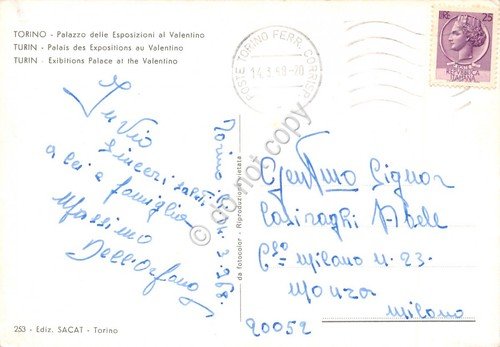 TORINO - Palazzo delle Esposizioni al Valentino
TURIN - Palais des Expositions au Valentino
TURIN - Exibitions Palace at the Valentino
POSTE TORINO FERR. CORRISP.
14.3.68-20
LIRE 25
REPUBBLICA ITALIANA
Invio
sinceri saluti
a lei e famiglia
Massimo
Dell'Orfano
Torino 14.3.968
da fotocolor - Riproduzione vietata
do not copy
Gentmo Signor
Casiraghi Adele
Cso Milano N. 23
Monza
Milano
20052
253 - Ediz. SACAT - Torino